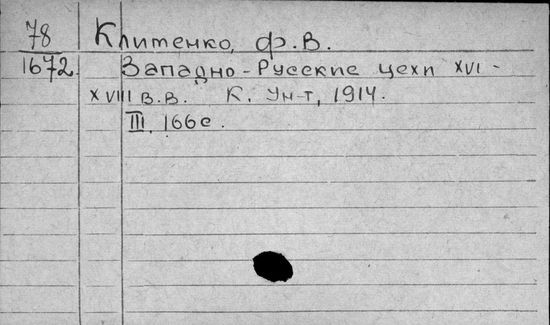 78 Клименко, Ф.В.
1672. Западно-Русские цехи XVI -
XVIII в.в. К, Ун-т, 1914.
III, 166с.